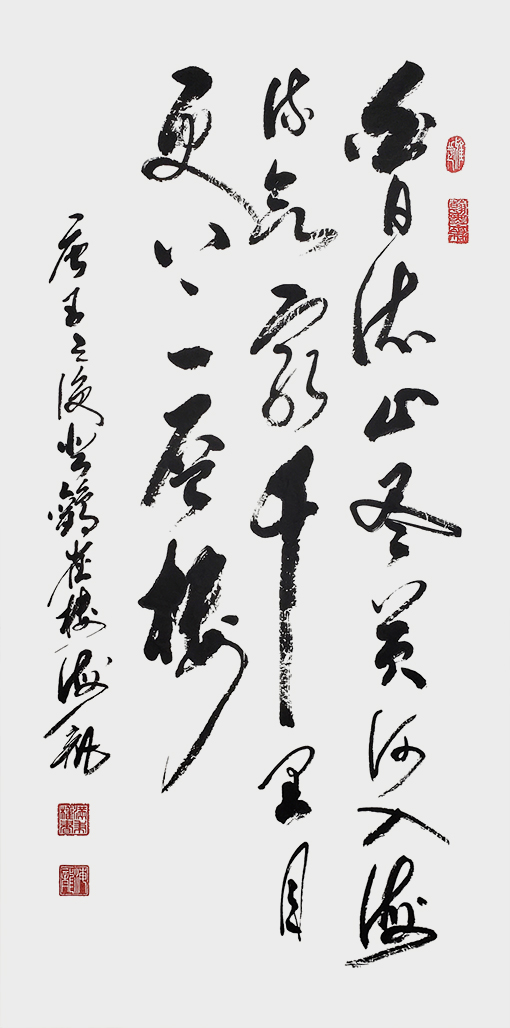 白日依山尽黄河入海
流欲穷千里目
更上一层楼
唐王之涣登鹳雀楼海